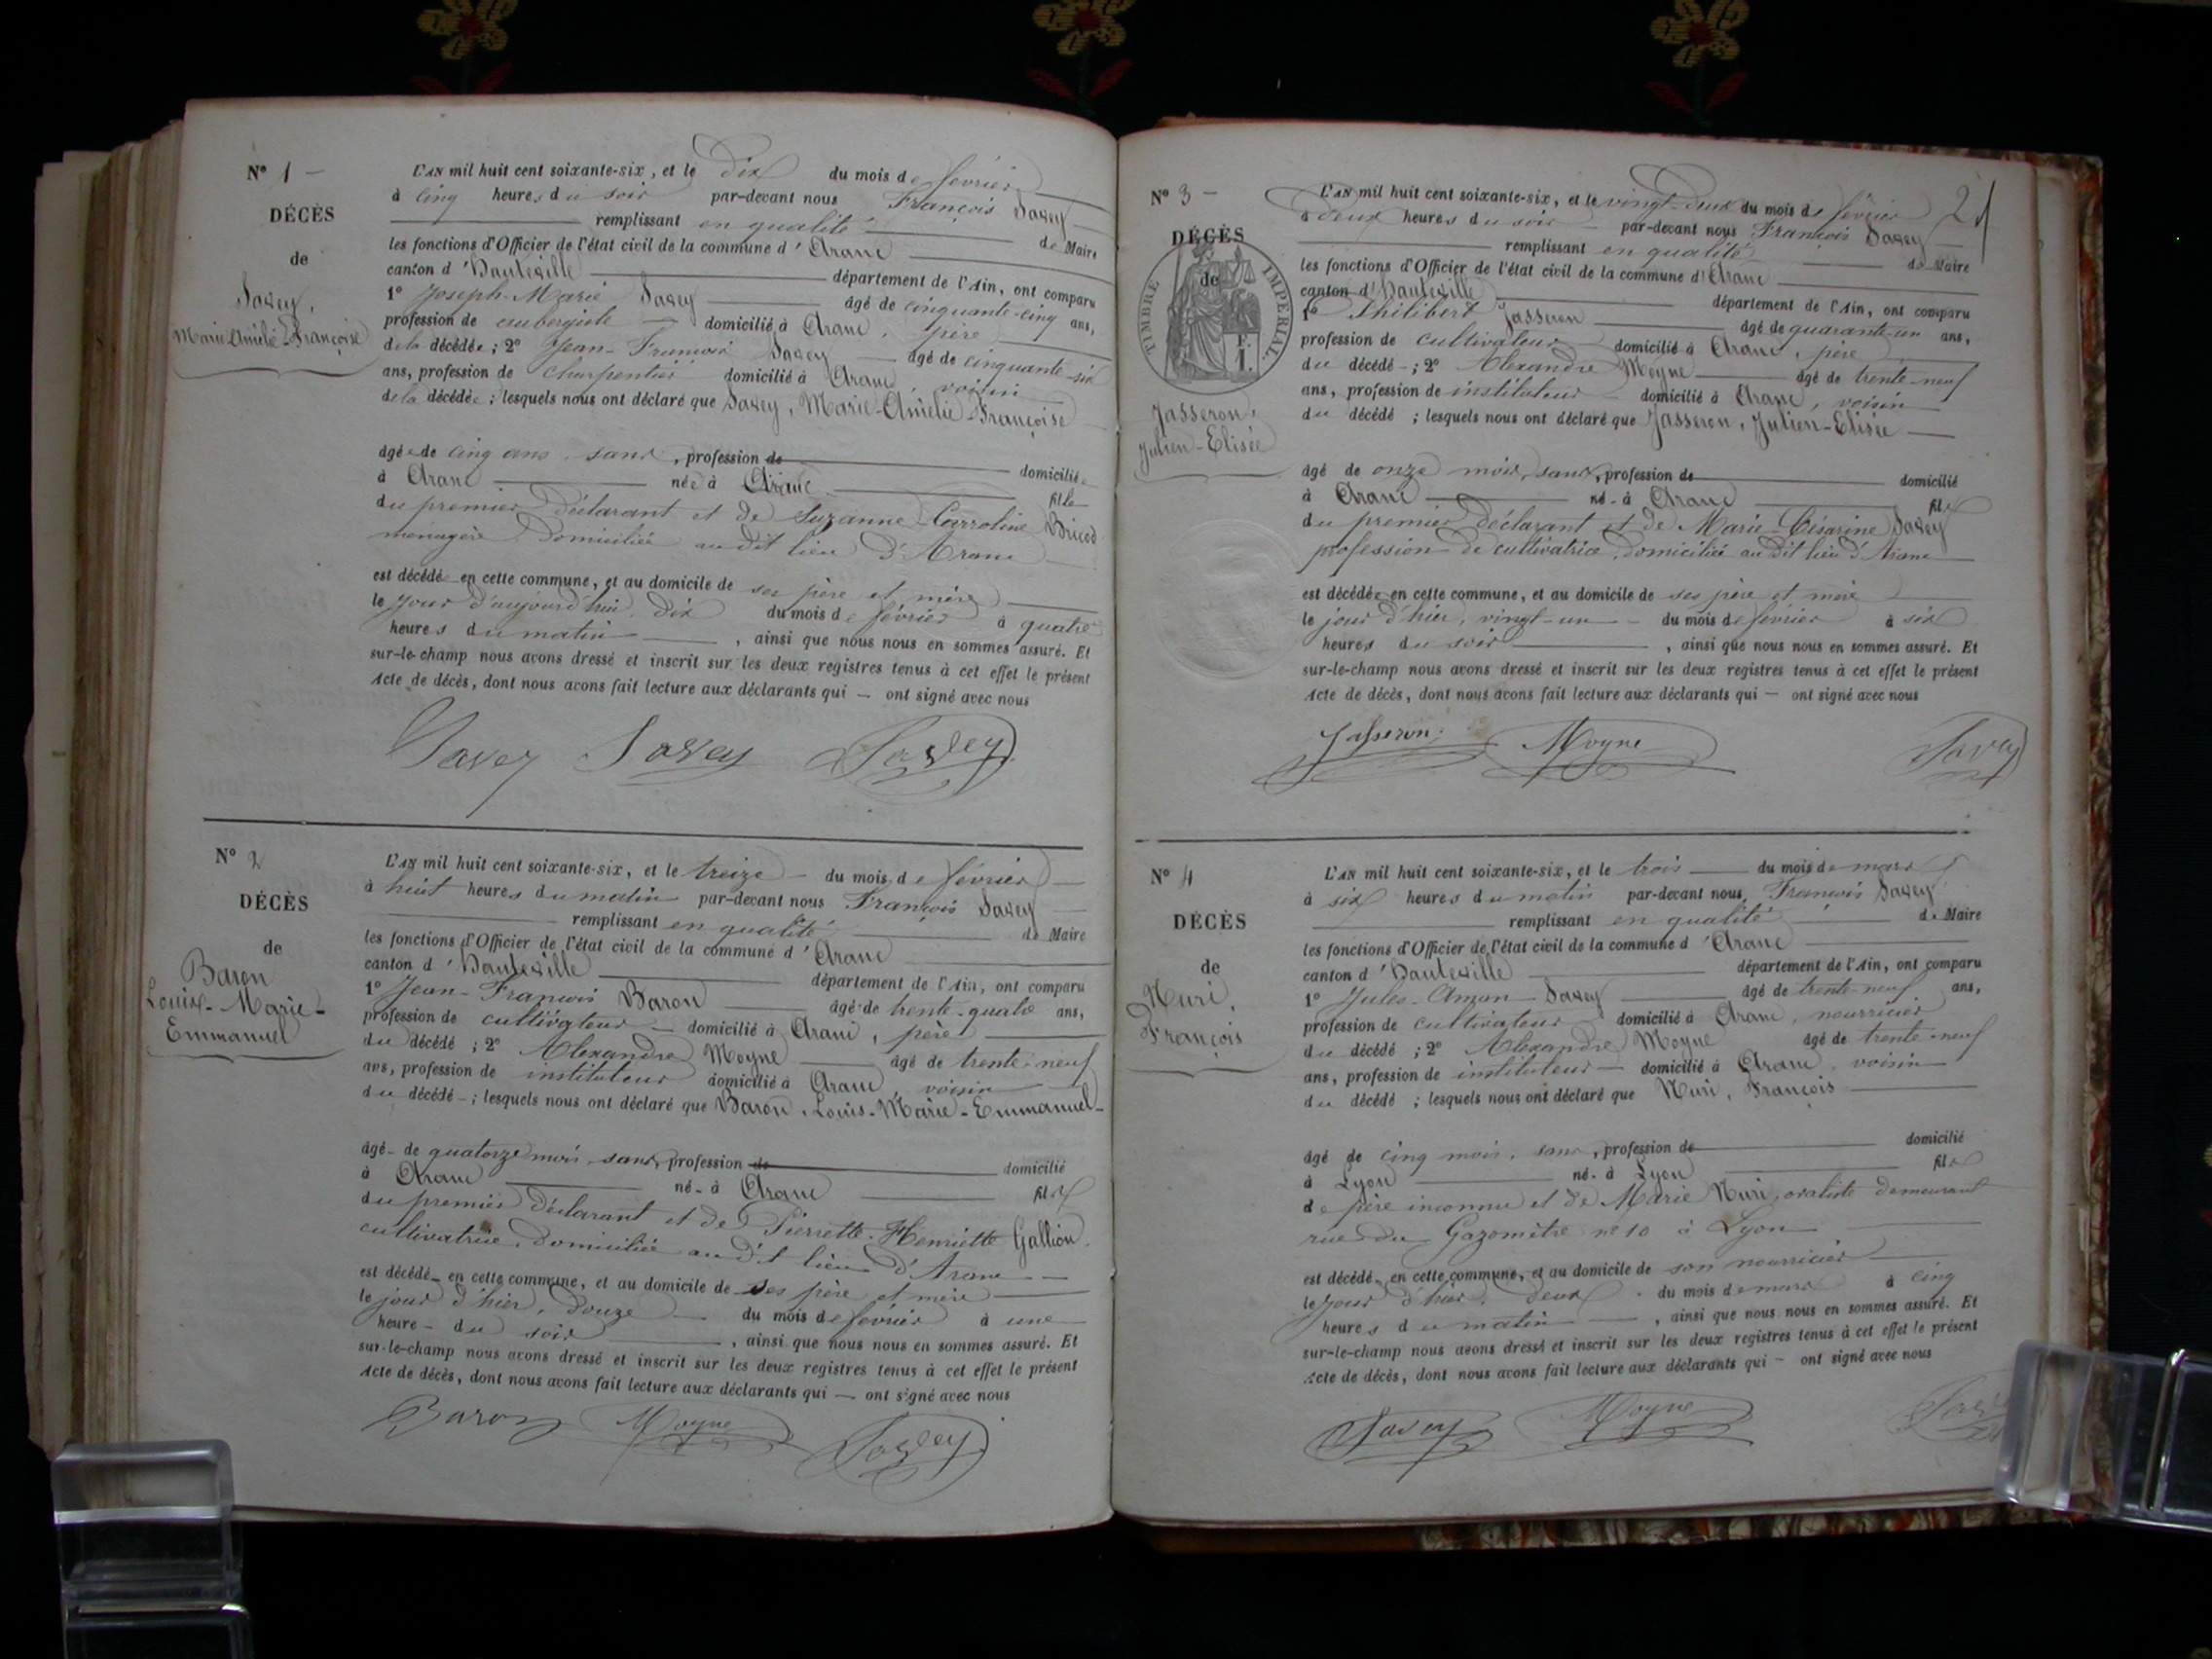 N° 1 –
DÉCÈS
de
Savey,
Marie-Amélie-Françoise
L'AN mil huit cent soixante-six, et le dix du mois de février
à cinq heures du soir par-devant nous François Savey
remplissant en qualité de Maire
les fonctions d'Officier de l'état civil de la commune d'Aranc
canton d'Hauteville département de l'Ain, ont comparu
1° Joseph-Marie Savey âgé de cinquante-cinq ans,
profession de aubergiste domicilié à Aranc, père
de la décédée; 2° Jean-François Savey âgé de cinquante-six
ans, profession de charpentier domicilié à Aranc, voisin
de la décédée; lesquels nous ont déclaré que Savey, Marie-Amélie-Françoise
âgée de cinq ans, sans, profession de domiciliée
à Aranc née à Aranc fille
du premier déclarant et de Suzanne-Carroline Bricod
ménagère domiciliée au dit lieu d'Aranc
est décédé en cette commune, et au domicile de ses père et mère
le jour d'aujourd'hui dix du mois de février à quatre
heures du matin, ainsi que nous nous en sommes assuré. Et
sur-le-champ nous avons dressé et inscrit sur les deux registres tenus à cet effet le présent
Acte de décès, dont nous avons fait lecture aux déclarants qui — ont signé avec nous
Savey Savey Savey
N° 2
DÉCÈS
de
Baron
Louis-Marie-
Emmanuel
L'AN mil huit cent soixante-six, et le treize du mois de février
à huit heures du matin par-devant nous François Savey
remplissant en qualité de Maire
les fonctions d'Officier de l'état civil de la commune d'Aranc
canton d'Hauteville département de l'Ain, ont comparu
1° Jean-François Baron âgé de trente-quatre ans,
profession de cultivateur domicilié à Aranc, père
du décédé; 2° Alexandre Moyne âgé de trente-neuf
ans, profession de instituteur domicilié à Aranc, voisin
du décédé; lesquels nous ont déclaré que Baron, Louis-Marie-Emmanuel
âgé de quatorze mois, sans, profession de domicilié
à Aranc né à Aranc fils
du premier déclarant et de Pierrette-Henriette Gallion
cultivatrice, domiciliée au dit lieu d'Aranc
est décédé en cette commune, et au domicile de ses père et mère
le jour d'hier, douze du mois de février à une
heure du soir, ainsi que nous nous en sommes assuré. Et
sur-le-champ nous avons dressé et inscrit sur les deux registres tenus à cet effet le présent
Acte de décès, dont nous avons fait lecture aux déclarants qui — ont signé avec nous
Baron Moyne Savey
N° 3 –
DÉCÈS
de
TIMBRE IMPÉRIAL
Jasseron,
Julien-Elisée
L'AN mil huit cent soixante-six, et le vingt-deux du mois de février
à deux heures du soir par-devant nous François Savey
remplissant en qualité de Maire
les fonctions d'Officier de l'état civil de la commune d'Aranc
canton d'Hauteville département de l'Ain, ont comparu
1° Philibert Jasseron âgé de quarante-un ans,
profession de cultivateur domicilié à Aranc, père
du décédé; 2° Alexandre Moyne âgé de trente-neuf
ans, profession de instituteur domicilié à Aranc, voisin
du décédé; lesquels nous ont déclaré que Jasseron, Julien-Elisée
âgé de onze mois, sans, profession de domicilié
à Aranc né à Aranc fils
du premier déclarant et de Marie-Césarine Savey
profession de cultivatrice, domiciliée au dit lieu d'Aranc
est décédé en cette commune, et au domicile de ses père et mère
le jour d'hier, vingt-un du mois de février à six
heures du soir, ainsi que nous nous en sommes assuré. Et
sur-le-champ nous avons dressé et inscrit sur les deux registres tenus à cet effet le présent
Acte de décès, dont nous avons fait lecture aux déclarants qui — ont signé avec nous
Jasseron Moyne Savey
N° 4
DÉCÈS
de
Nuri,
François
L'AN mil huit cent soixante-six, et le trois du mois de mars
à six heures du matin par-devant nous François Savey
remplissant en qualité de Maire
les fonctions d'Officier de l'état civil de la commune d'Aranc
canton d'Hauteville département de l'Ain, ont comparu
1° Jules-Aman Savey âgé de trente-neuf ans,
profession de cultivateur domicilié à Aranc, nourricier
du décédé; 2° Alexandre Moyne âgé de trente-neuf
ans, profession de instituteur domicilié à Aranc, voisin
du décédé; lesquels nous ont déclaré que Nuri, François
âgé de cinq mois, sans, profession de domicilié
à Lyon né à Lyon fils
de père inconnu et de Marie Nuri, ovaliste demeurant
rue du Gazomètre n° 10 à Lyon
est décédé en cette commune, et au domicile de son nourricier
le jour d'hier, deux du mois de mars à cinq
heures du matin, ainsi que nous nous en sommes assuré. Et
sur-le-champ nous avons dressé et inscrit sur les deux registres tenus à cet effet le présent
Acte de décès, dont nous avons fait lecture aux déclarants qui — ont signé avec nous
Savey Moyne Savey